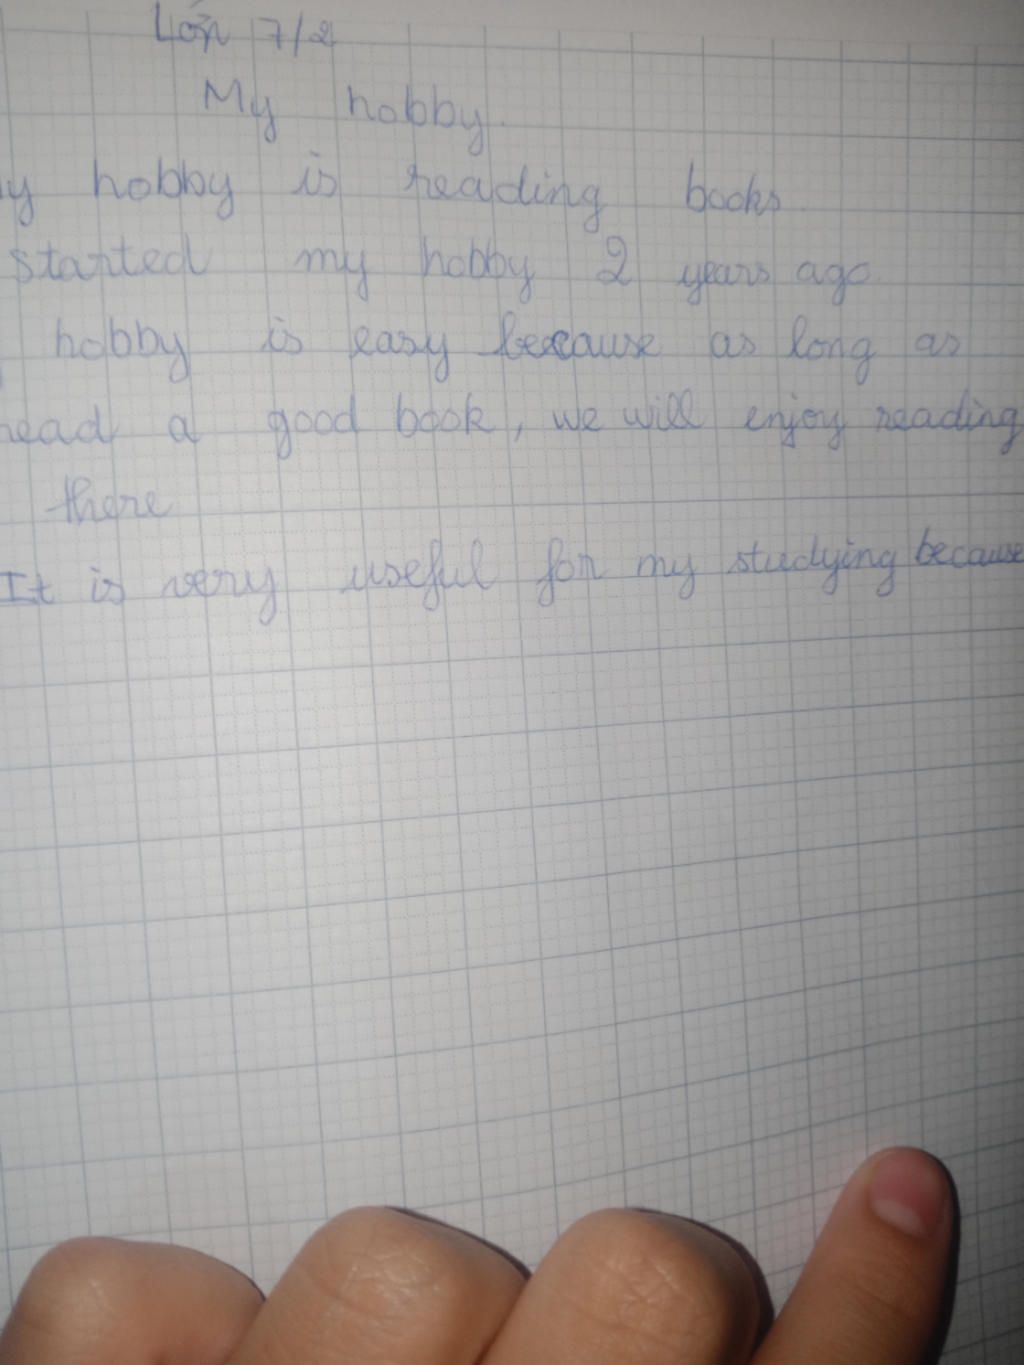 Lớp 7/2
My hobby.
y hobby is reading books.
started my hobby 2 years ago.
hobby is easy because as long as
read a good book, we will enjoy reading
there
It is very useful for my studying because